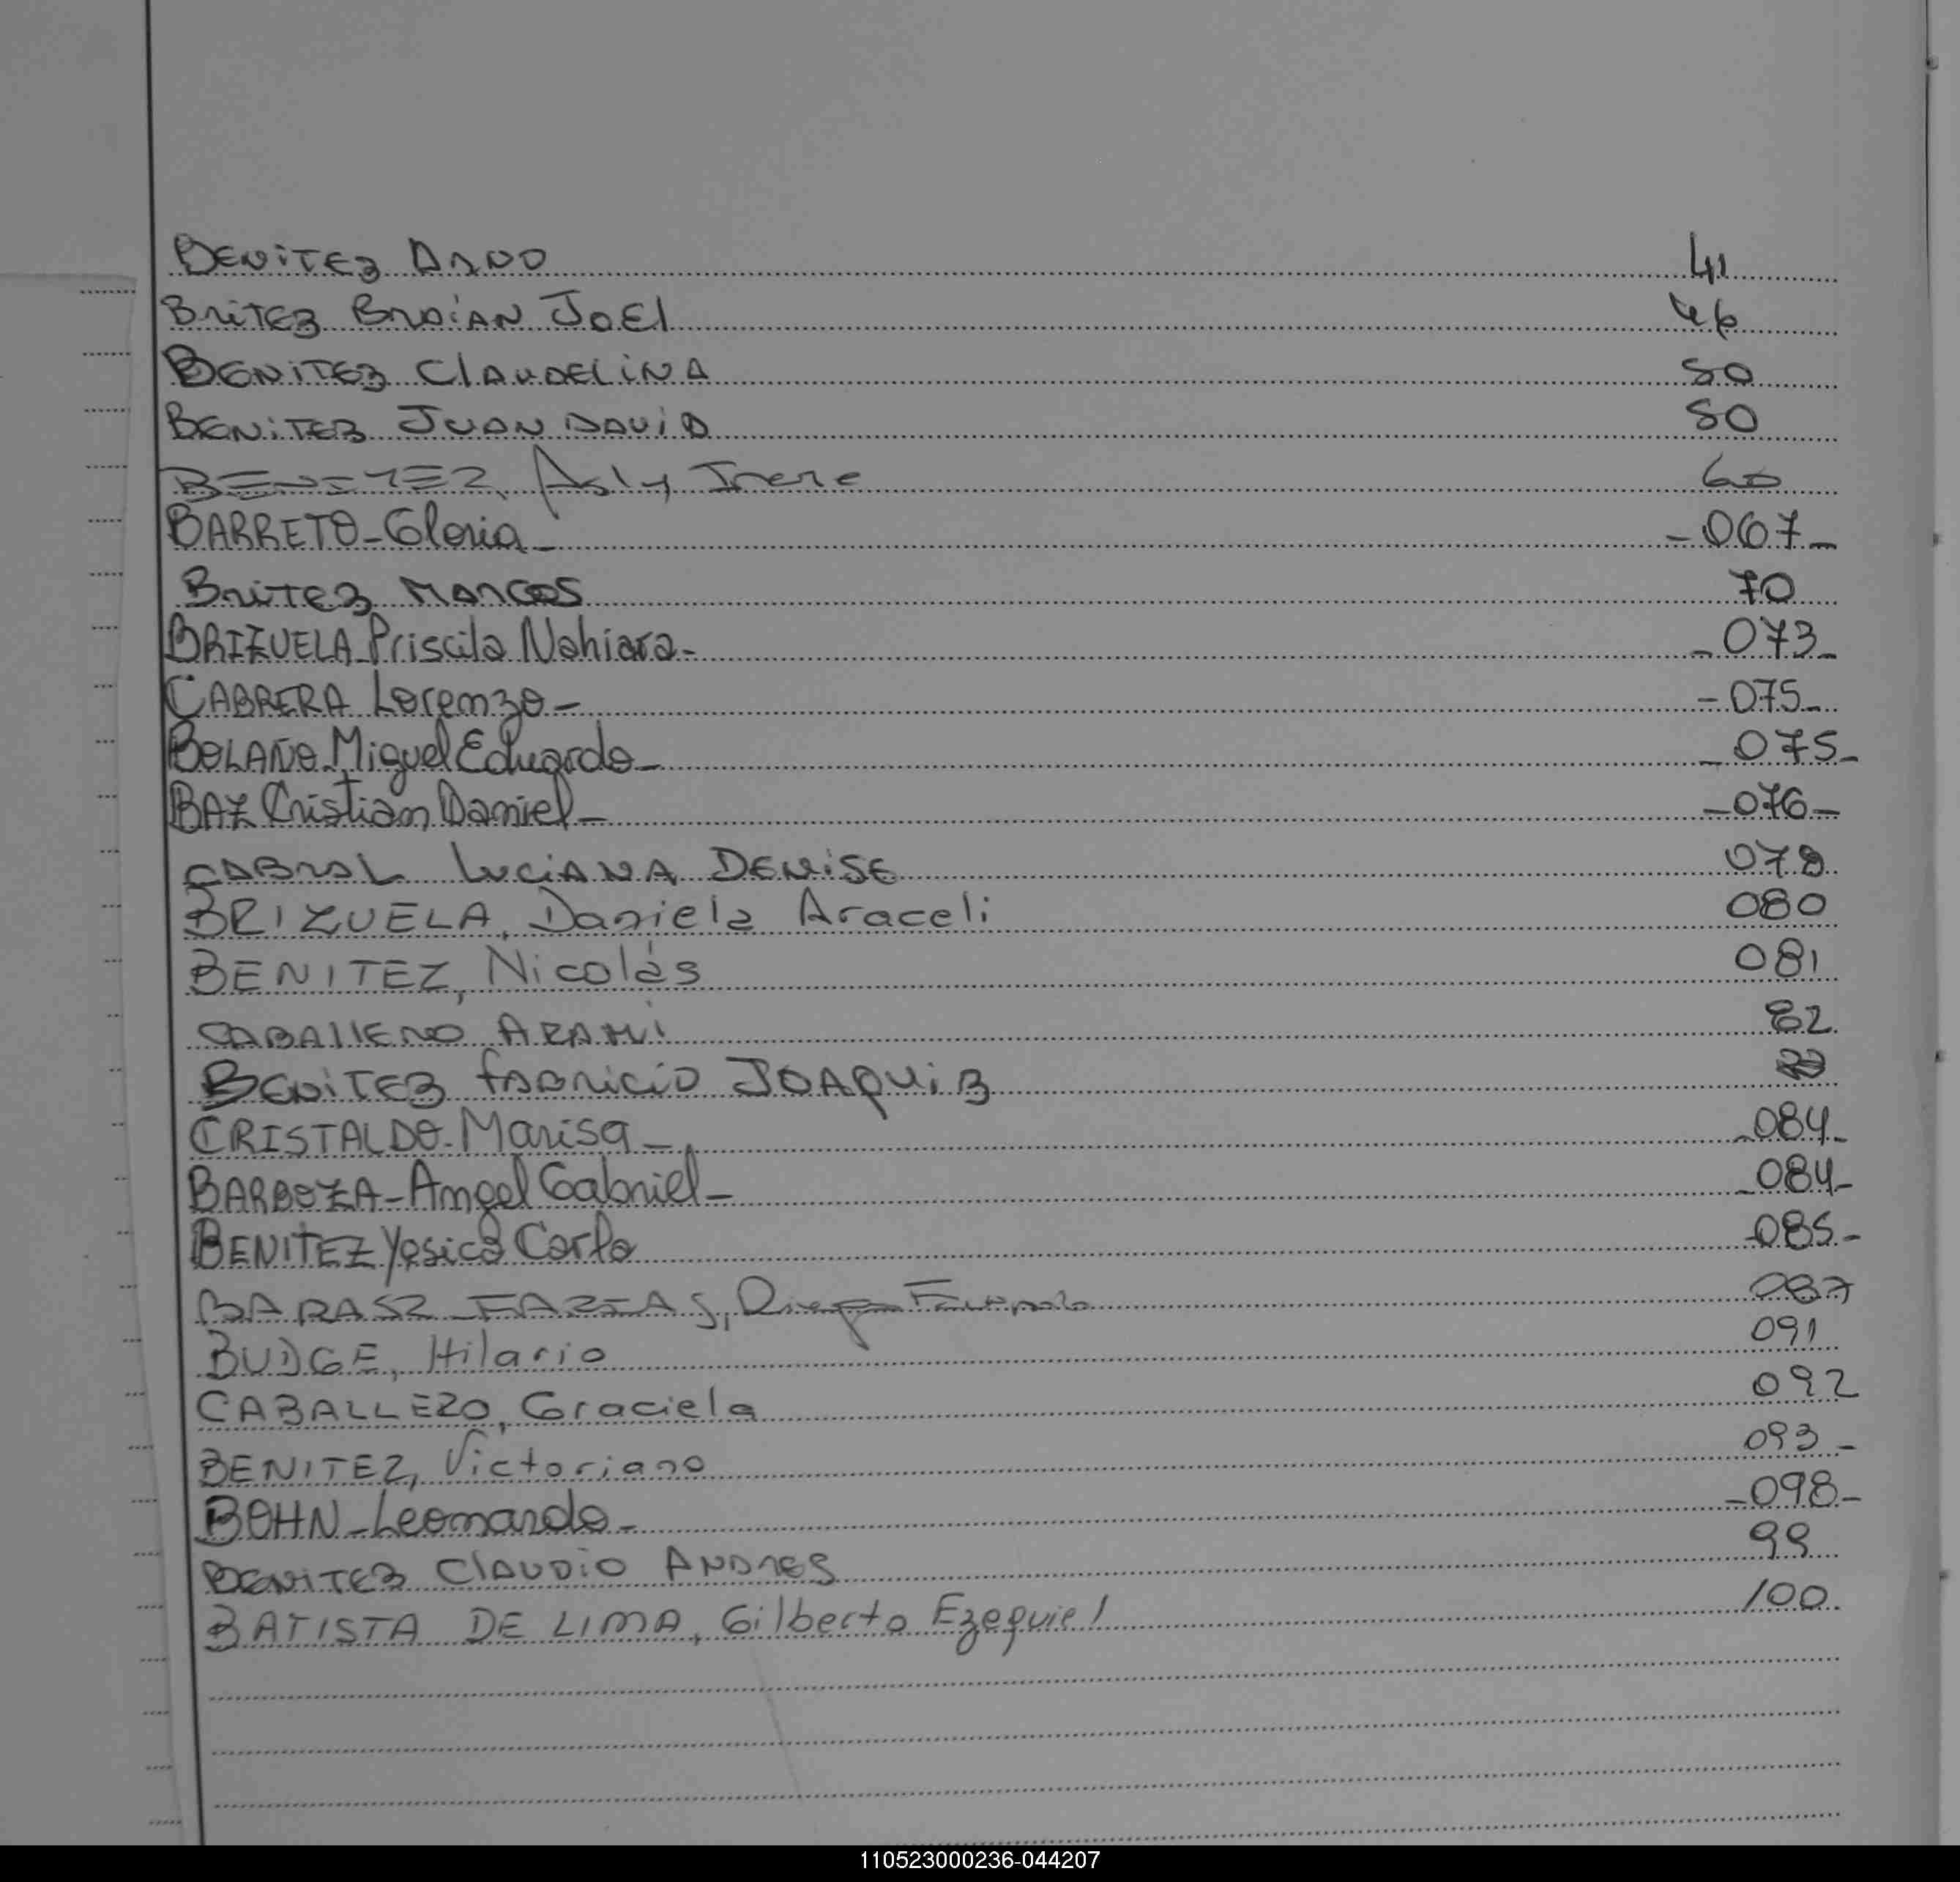 BENITEZ DARDO 41
BRITEZ BRAIAN JOEL 46
BENITEZ CLAUDELINA 50
BENITEZ JUAN DAVID 50
BENITEZ, Asly Irene 60
BARRETO-Gloria- -067-
BRITEZ MARCOS 70
BRIZUELA Priscila Nahiara- -073-
CABRERA Lorenzo- -075-
BOLAÑO Miguel Eduardo- -075-
BAZ Cristian Daniel- -076-
CABRAL LUCIANA DENISE 079
BRIZUELA, Daniela Araceli 080
BENITEZ, Nicolás 081
CABALLERO ARAMI 82
BENITEZ FABRICIO JOAQUIB
CRISTALDO-Marisa- -084-
BARBOZA-Angel Gabriel- -084-
BENITEZ Yesica Carla -085-
FARIAS, 087
BUDGE, Hilario 091
CABALLERO, Graciela 092
BENITEZ, Victoriano 093-
BOHN-Leonardo- -098-
BENITEZ CLAUDIO ANDRES 99
BATISTA DE LIMA, Gilberto Ezequiel 100
110523000236-044207